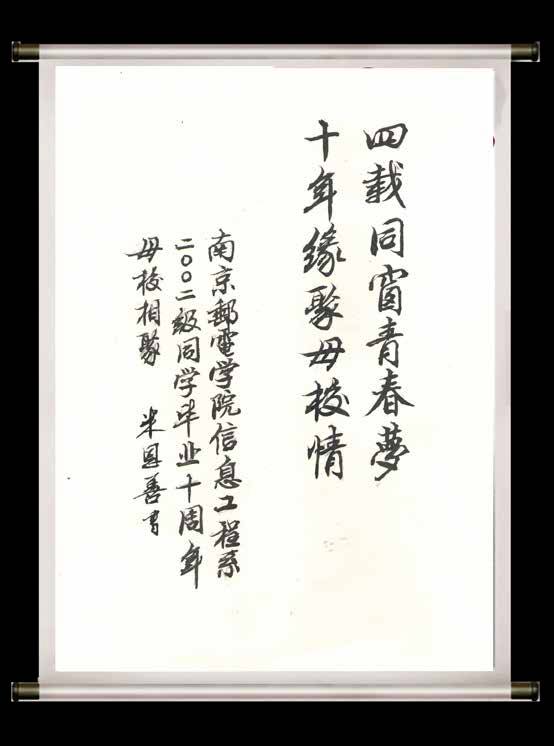 四载同窗青春夢
十年缘聚母校情
南京郵電学院信息工程系
二〇〇二级同学毕业十周年
母校相聚 米恩善书